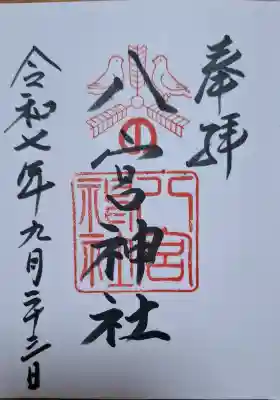 奉拝
八宮神社
令和七年九月二十三日
八宮
神社